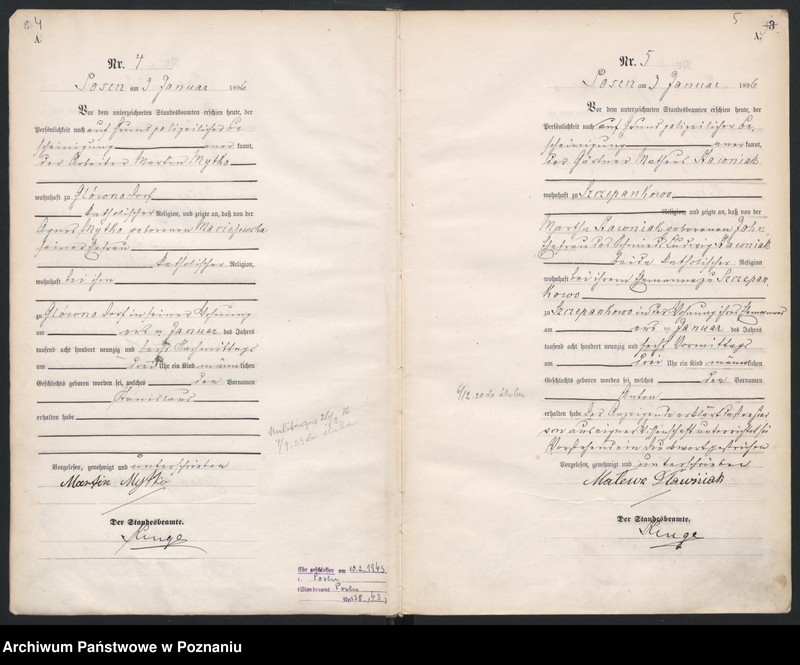 4
A.
Nr. 4
Posen am 3 Januar 1896
Vor dem unterzeichneten Standesbeamten erschien heute, der
Persönlichkeit nach auf Grund polizeilicher Be
scheinigung aner kannt,
der Arbeiter Martin Mytko
wohnhaft zu Glówno Dorf
katholischer Religion, und zeigte an, daß von der
Agnes Mytko geborenen Maciejewska
seiner Ehefrau
katholischer Religion,
wohnhaft bei ihm
zu Glówno Dorf in seiner Wohnung
am Januar des Jahres
tausend acht hundert neunzig und sechs Nachmittags
um drei Uhr ein Kind männlichen
Geschlechts geboren worden sei, welches den Vornamen
Stanislaus
erhalten habe
Vorgelesen, genehmigt und unterschrieben
Martin Mytko
Der Standesbeamte.
Runge
geschlossen am 10.2.1943
Posen
(Standesamt Posen
Nr. 138/43)
5
3
A.
Nr. 5
Posen am 3 Januar 1896
Vor dem unterzeichneten Standesbeamten erschien heute, der
Persönlichkeit nach auf Grund polizeilicher Be
scheinigung aner kannt,
der Gärtner Matheus Stawniak
wohnhaft zu Szczepankowo
Religion, und zeigte an, daß von der
Martha Stawniak geborenen John,
Ehefrau des Ludwig Stawniak
beide katholischer Religion
wohnhaft bei ihrem Ehemanne zu Szczepan
kowo
zu Szczepankowo in der Wohnung ihres Ehemannes
am Januar des Jahres
tausend acht hundert neunzig und sechs Vormittags
um drei Uhr ein Kind männlichen
Geschlechts geboren worden sei, welches den Vornamen
Anton
erhalten habe. Der Anzeigende erklärt daß er hier
von aus eigener Wissenschaft unterrichtet sei
Vorstehend ein Druckwort gestrichen
Vorgelesen, genehmigt und unterschrieben
Mateusz Stawniak
Der Standesbeamte.
Runge
Archiwum Państwowe w Poznaniu